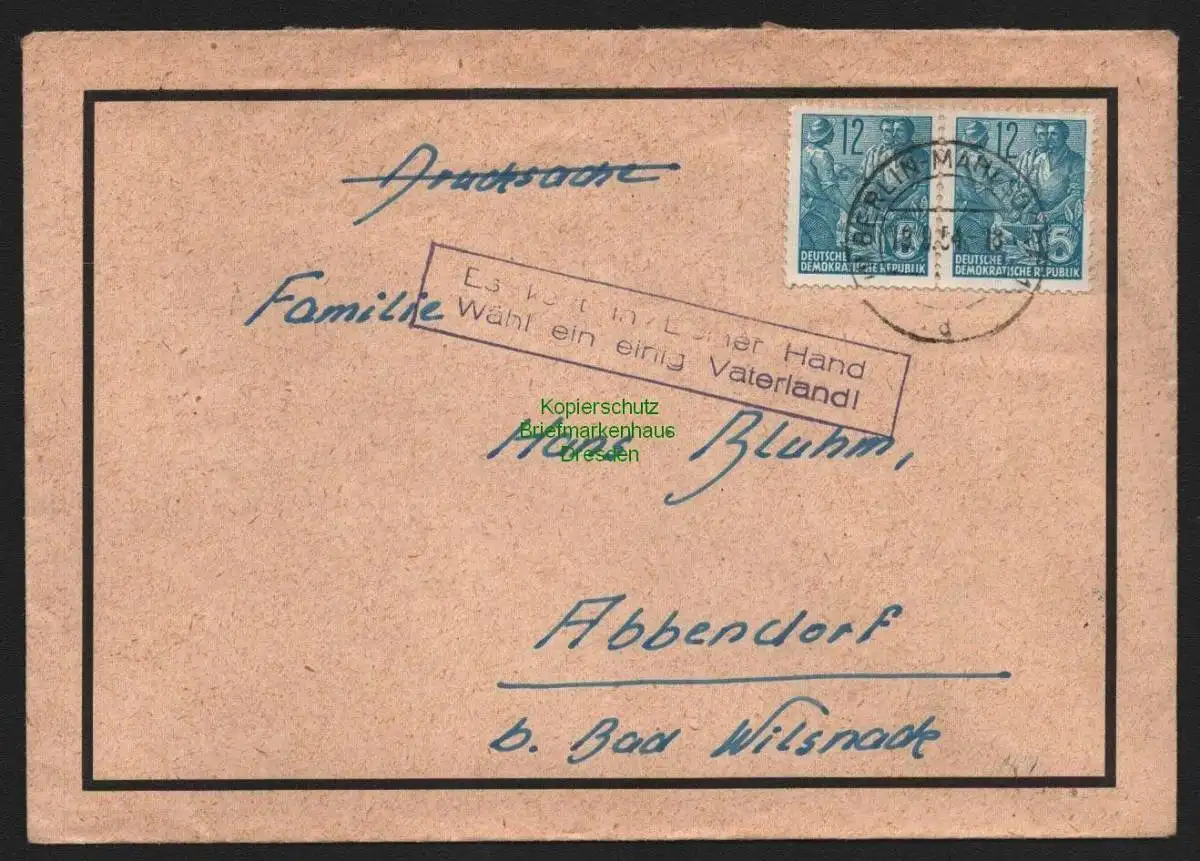 Drucksache
12 12
5 5
DEUTSCHE DEMOKRATISCHE REPUBLIK
DEUTSCHE DEMOKRATISCHE REPUBLIK
BERLIN-MAHLSDORF
d
Es in Deiner Hand
Wähl ein einig Vaterland!
Familie
Hans Bluhm,
Kopierschutz
Briefmarkenhaus
Dresden
Abbendorf
b. Bad Wilsnack